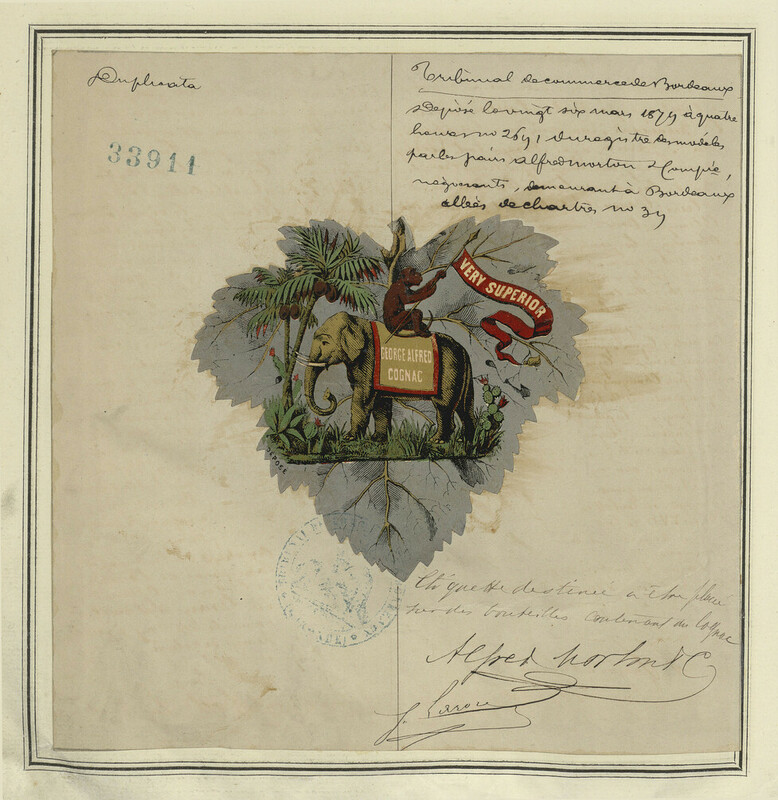 Duplicata
33911
Tribunal de commerce de Bordeaux
Déposé le vingt six mars 1879 à quatre
heures no 2691 du registre des modèles
par les sieurs Alfred Morton & Compie,
négociants, demeurant à Bordeaux
allées de chartres no 39
VERY SUPERIOR
GEORGE ALFRED
COGNAC
DÉPOSÉ
Etiquette destinée à être placée
sur des bouteilles contenant du Cognac
Alfred Morton & C